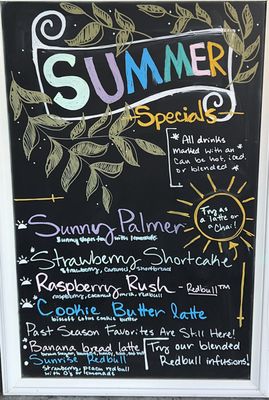 SUMMER
Specials
*All drinks
Marked with an *
Can be hot, iced
or blended
Try as
a latte or
a Chai!
Sunny Palmer
with lemonade
Strawberry Shortcake
Strawberry, Caramel, shortbread
Raspberry Rush - Redbull™
raspberry, coconut, redbull
Cookie Butter latte
biscoff lotus cookie butter
Past Season Favorites Are Still Here!
Banana bread latte
Sunrise Redbull
strawberry, peach redbull
with OJ or lemonade
Try our blended
Redbull infusions!